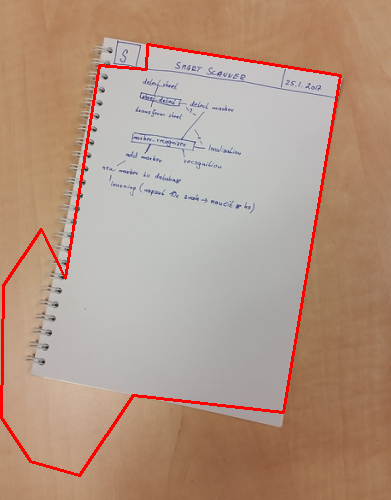 S
SMART SCANNER
25.1.2017
detect sheet
sheet_detect
detect marker
transform sheet
marker_recognize
localization
add marker
recognition
new marker to database
learning (repeat